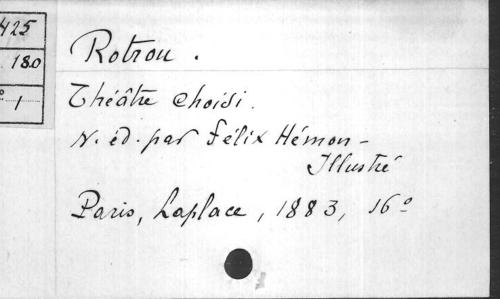 425
180
° 1
Rotrou.
Théâtre choisi.
N. éd. par Félix Hémon-
Illustré
Paris, Laplace, 1883, 16°